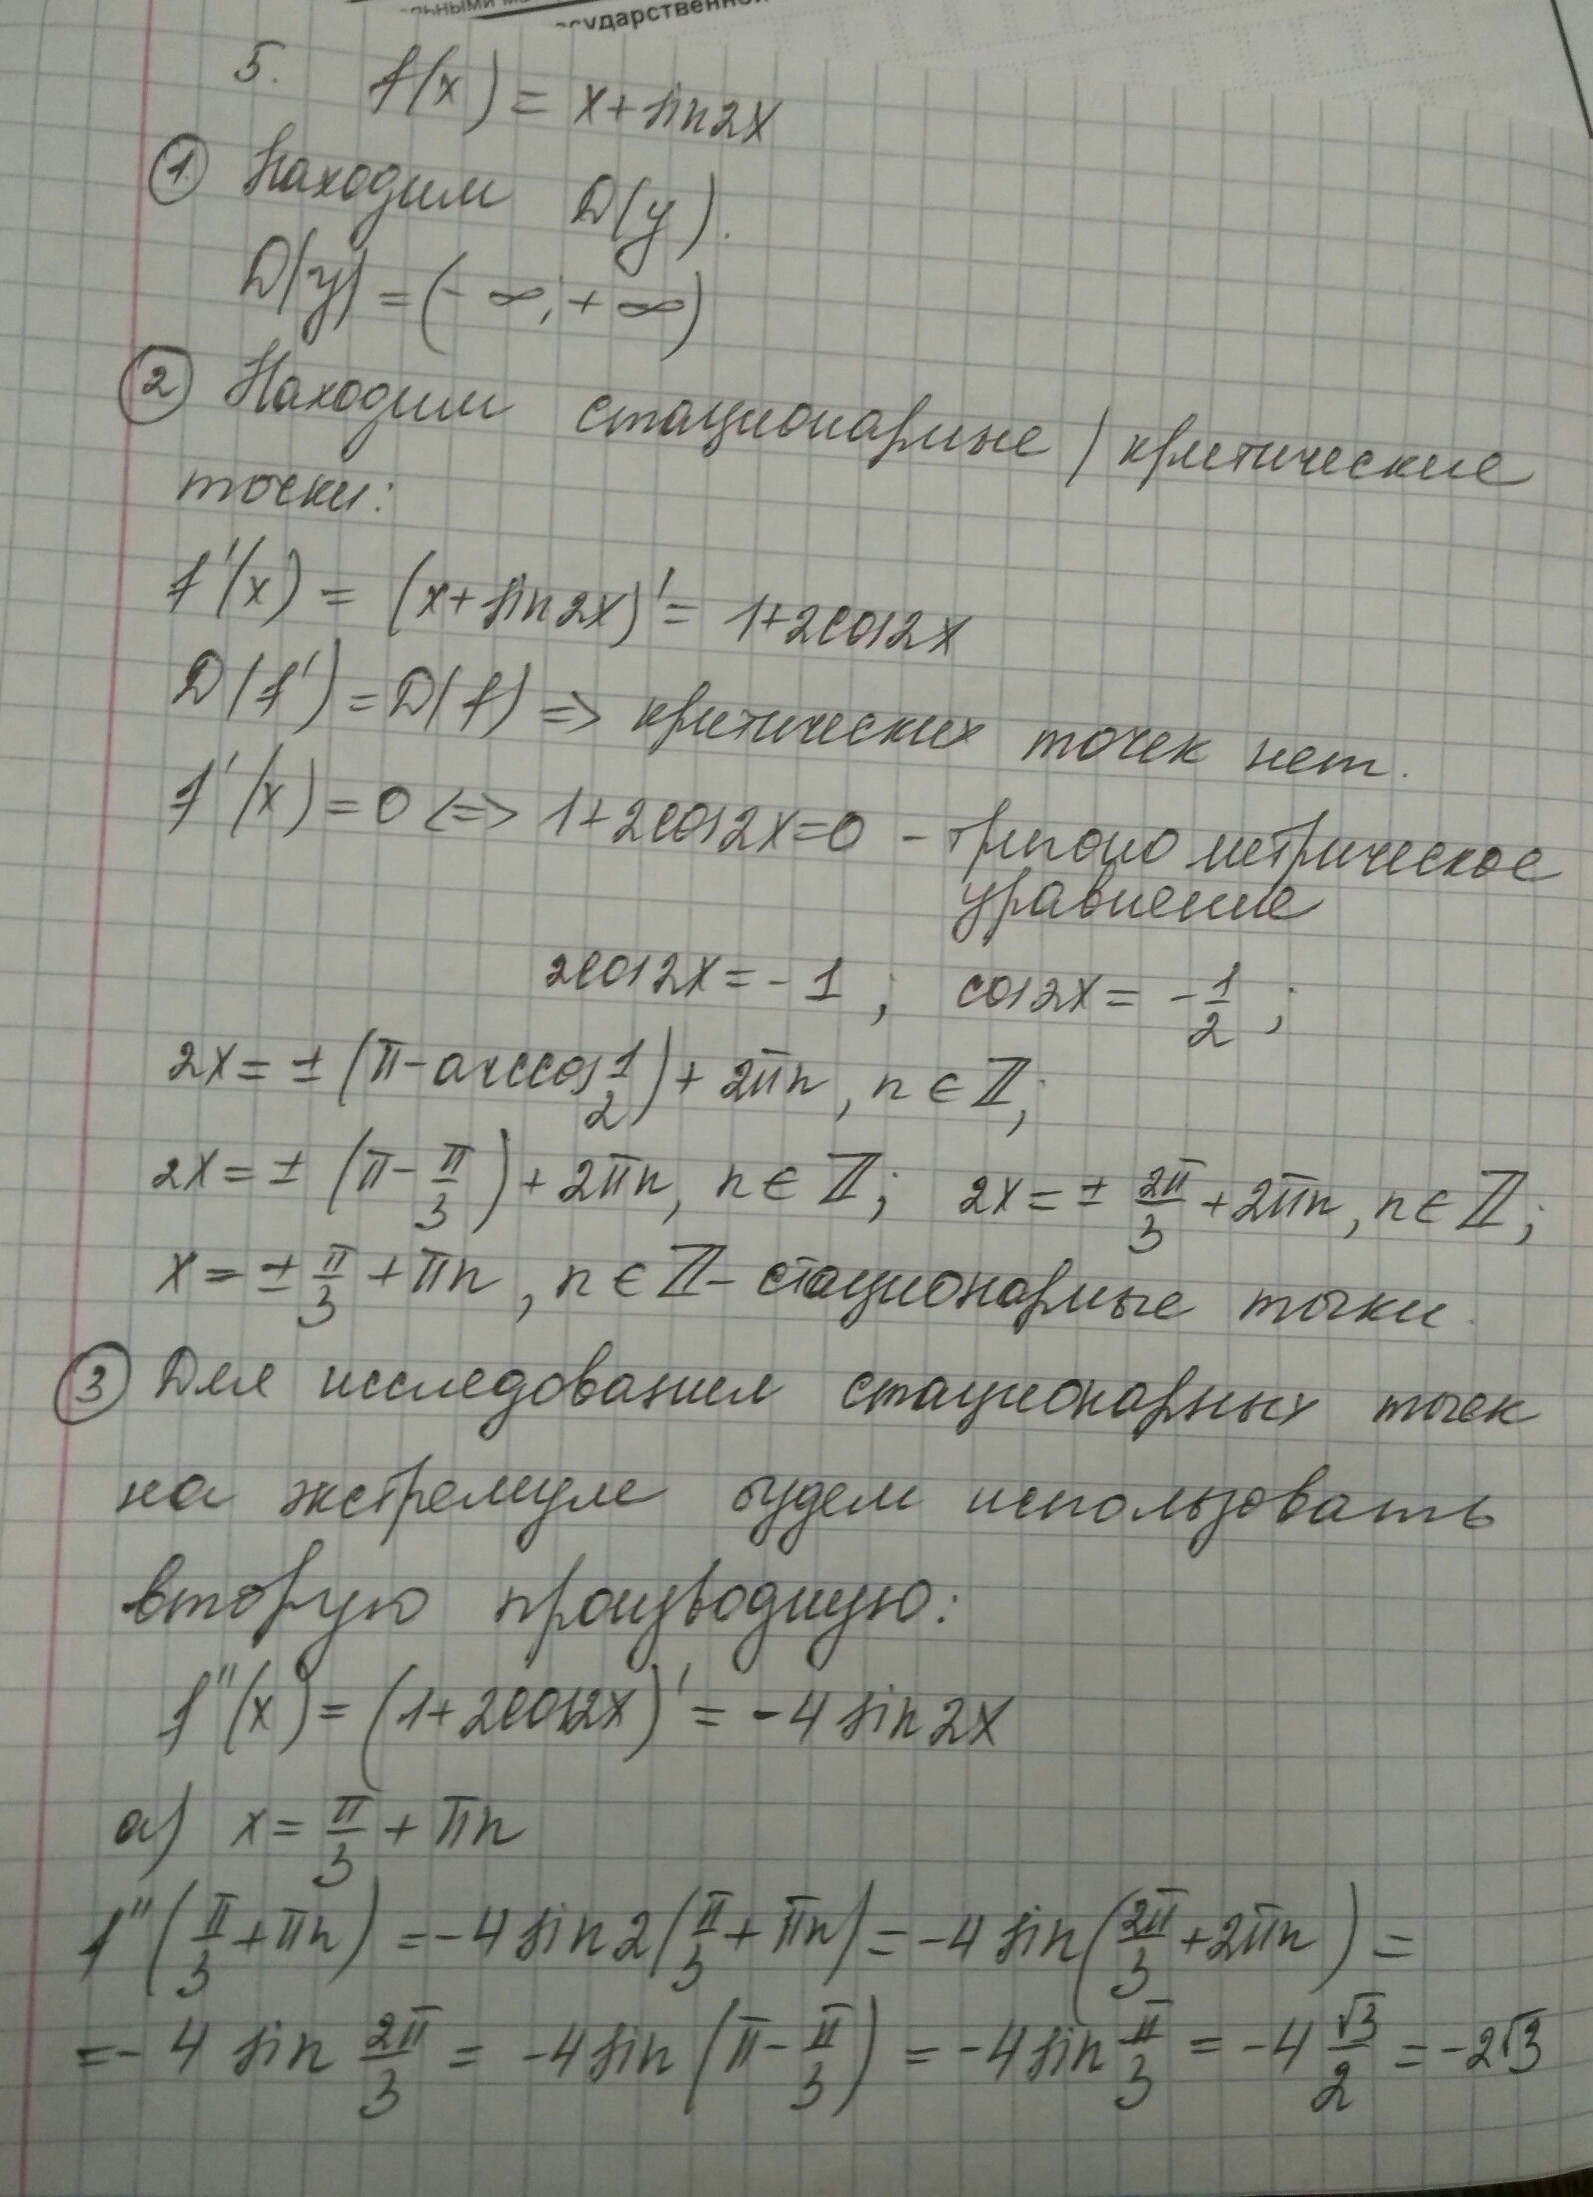 льными м
осударственной
5. f(x) = x + sin2x
① Находим D(y).
D(y) = (-∞; +∞)
② Находим стационарные / критические
точки:
f'(x) = (x + sin2x)' = 1+2cos2x
D(f') = D(f) => критических точек нет.
f'(x) = 0 <=> 1+2cos2x=0 - тригонометрическое
уравнение
2cos2x = -1 ; cos2x = -1/2 ;
2x = ± (π - arccos 1/2) + 2πn, n ∈ ℤ;
2x = ± (π - π/3) + 2πn, n ∈ ℤ; 2x = ± 2π/3 + 2πn, n ∈ ℤ;
x = ± π/3 + πn, n ∈ ℤ - стационарные точки.
③ Для исследования стационарных точек
на экстремум будем использовать
вторую производную:
f''(x) = (1+2cos2x)' = -4 sin2x
а) x = π/3 + πn
f''(π/3 + πn) = -4 sin2(π/3 + πn) = -4 sin(2π/3 + 2πn) =
= -4 sin 2π/3 = -4sin(π - π/3) = -4sin π/3 = -4 √3/2 = -2√3